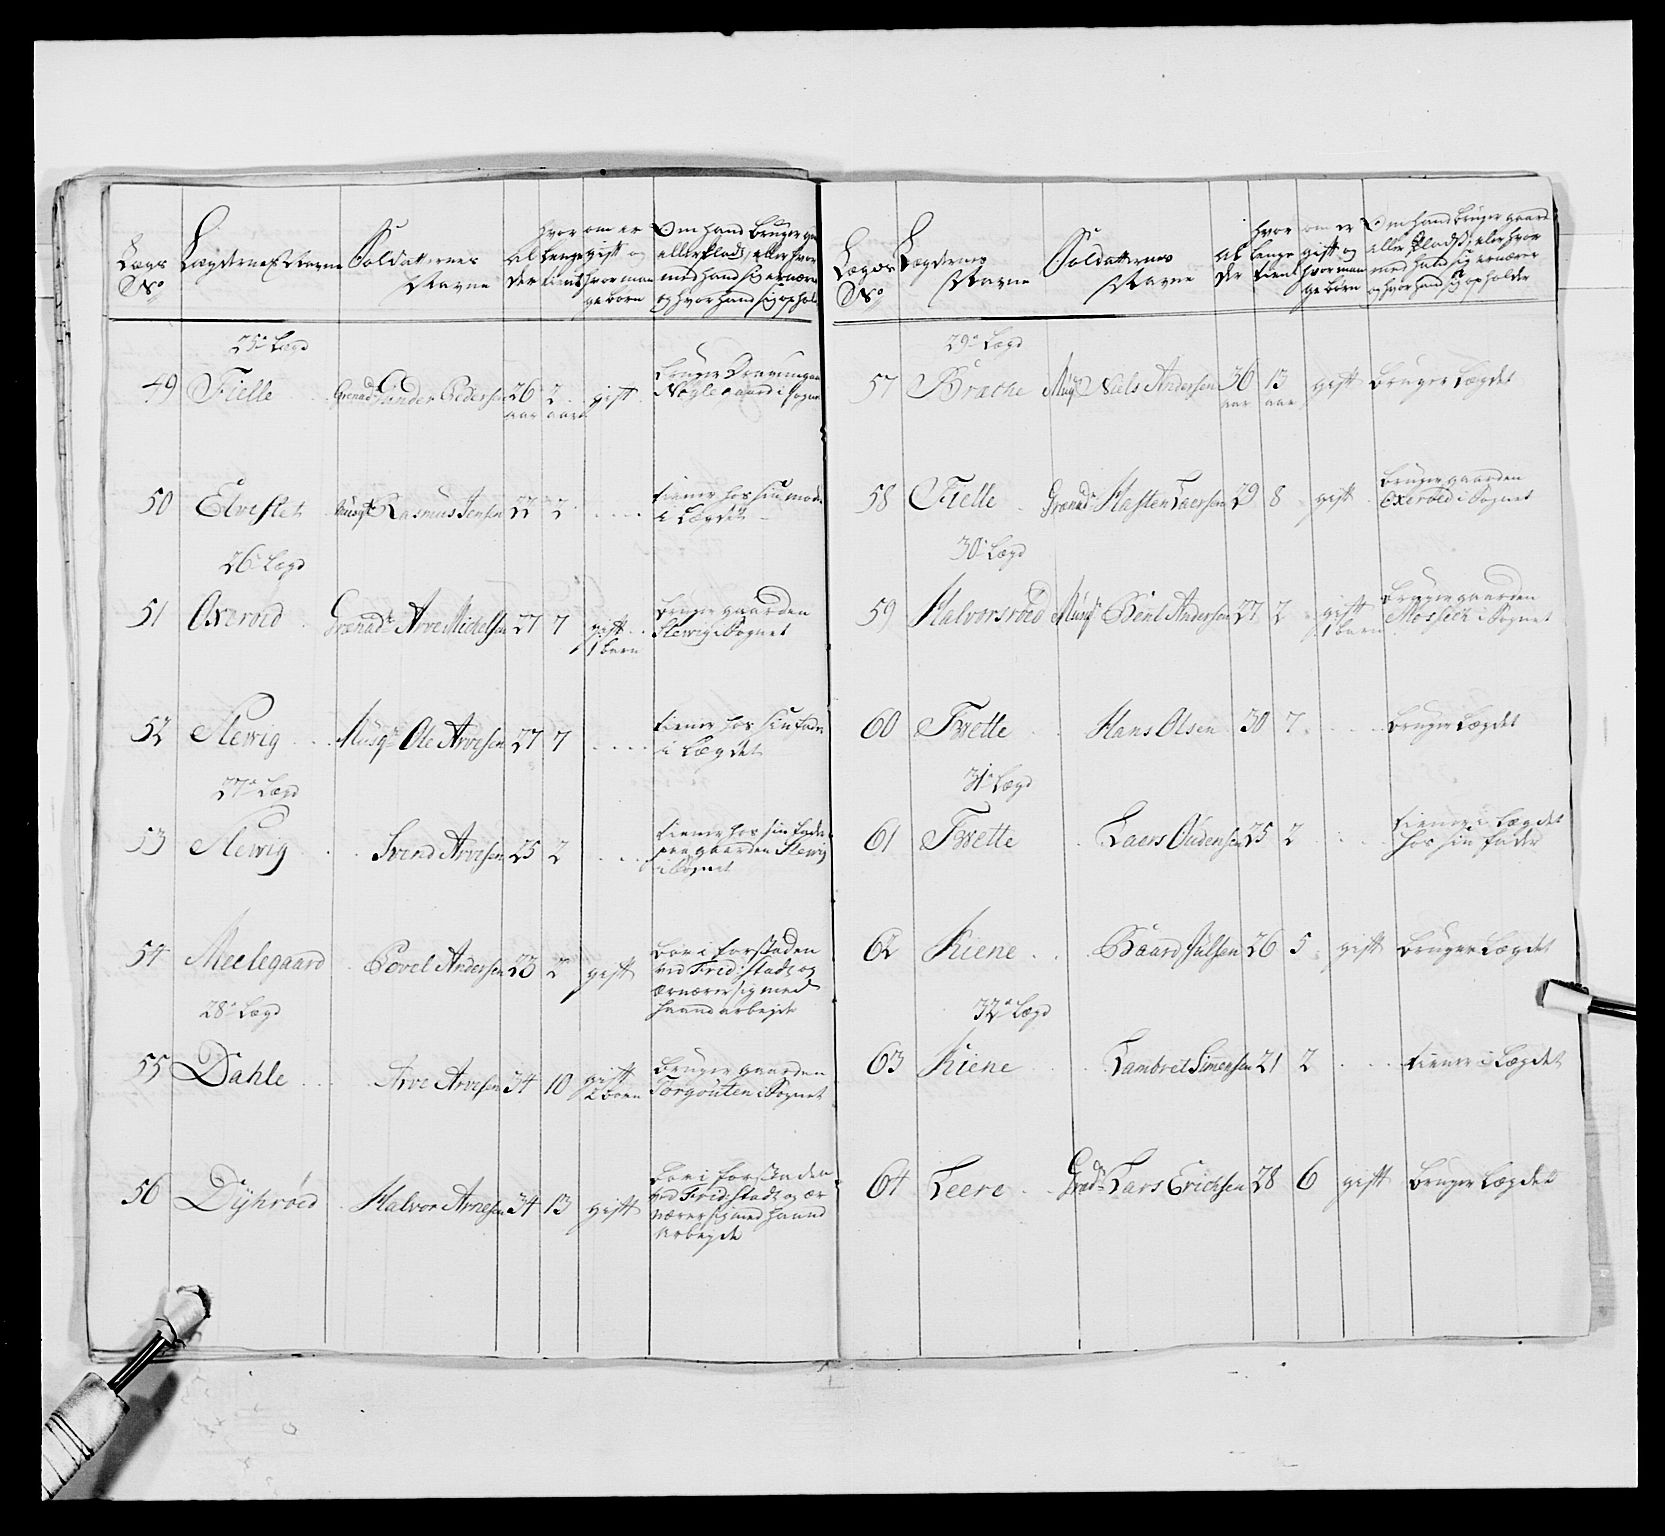 Lægs No
Lægdernes Navne
Soldatternes Navne
Alder
hvor lenge tient
om er gift og hvor mange børn
Om hand bruger gaard eller Plads, eller hvor med hand sig ernærer og hvor hand sig opholder
25de Lægd
49 Fielle Grenadr Gunder Pedersen 26 aar 2 aar gift
bruger
gaard i Sogne
50 Elvestet Musqt Rasmus Jensen 22 2
tiener hos sin moder
i Lægdet
26de Lægd
51 Oxerød Grenadr Arve Michelsen 27 7 gift 1 barn
bruger gaarden
Slevig i Sognet
52 Slevig Musqt Ole Arvesen 27 7
tiener hos sin fader
i Lægdet
27de Lægd
53 Slevig Svend Arvesen 25 2
tiener hos sin fader
paa gaarden Slevig
i Sognet
54 Meelegaard Povel Andersen 23 2 gift
boer i forstaden
ved Fridr:stadt og
ærnærer sig med
haandarbejde
28de Lægd
55 Dahle Arve Arvesen 34 10 gift 2 børn
bruger gaarden
Torgouten i Sognet
56 Dyhrød Halvor Arnesen 34 13 gift
boer i forstaden
ved Fridr:stadt og ær
nærer sig med haand
arbejde
Lægds No
Lægdernes Navne
Soldatternes Navne
Alder
hvor lange tient
om er gift og hvor mange børn
Om hand bruger gaard eller Pladtz, eler hvor med hand sig ernærer og hvor hand sig opholder
29de Lægd
57 Brache Musqt Niels Andersen 36 aar 13 aar gift bruger Lægdet
58 Fielle Grenadr Hasten Laersen 29 8 gift
bruger gaarden
Oxerød i Sognet
30de Lægd
59 Halvorsrød Musqt Bent Andersen 27 2 gift 1 barn
bruger gaarden
i Sognet
60 Tvette Hans Olsen 30 7 bruger Lægdet
31de Lægd
61 Tvette Laers Oudensen 25 2
tiener i Lægdet
hos sin fader
62 Kiene Baard Julsen 26 5 gift bruger Lægdet
32de Lægd
63 Kiene Lambret Simensen 21 2 tiener i Lægdet
64 Leere Gredr Lars Erichsen 28 6 gift bruger Lægdet